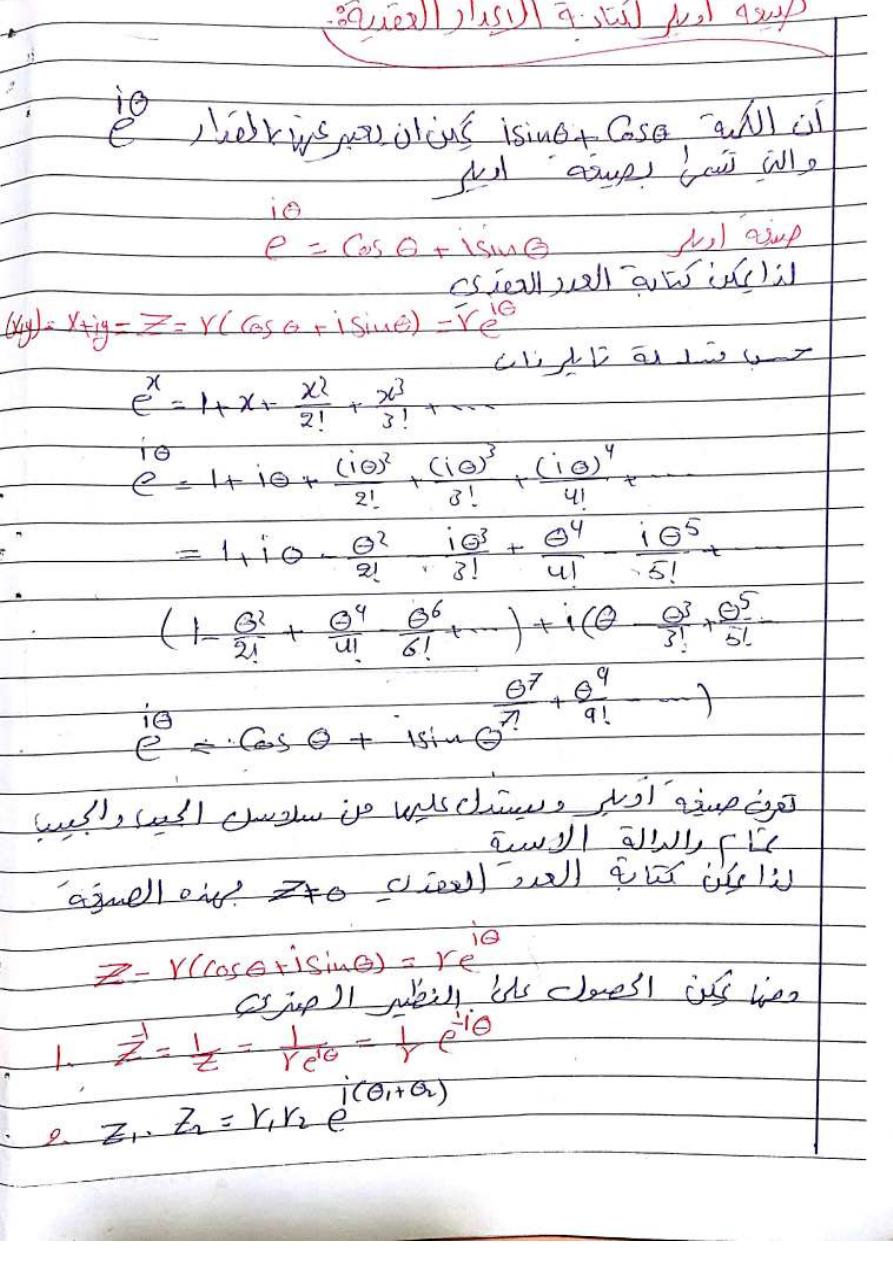 صيغة اويلر لكتابة الاعداد العقدية:
أن الكمية isinθ + Cosθ يمكن ان يعبر عنها بالمقدار e^{iθ}
والتي تسمى بصيغة اويلر
صيغة اويلر e^{iθ} = Cos θ + i sin θ
لذا يمكن كتابة العدد العقدي
(x,y) = x+iy = Z = r(Cos θ + i Sinθ) = r e^{iθ}
حسب سلسلة تايلر فان
e^x = 1 + x + x²/2! + x³/3! + ....
e^{iθ} = 1 + iθ + (iθ)²/2! + (iθ)³/3! + (iθ)⁴/4! + ....
= 1 + iθ - θ²/2! - iθ³/3! + θ⁴/4! - iθ⁵/5! + ....
(1 - θ²/2! + θ⁴/4! - θ⁶/6! + ....) + i(θ - θ³/3! + θ⁵/5! -
θ⁷/7! + θ⁹/9! ....)
e^{iθ} = Cos θ + i sin θ
تعرف صيغة اويلر ويستدل عليها من سلاسل الجيب والجيب
تمام والدالة الاسية
لذا يمكن كتابة العدد العقدي Z≠0 بهذه الصيغة
Z = r(cosθ + i Sinθ) = r e^{iθ}
ومنها يمكن الحصول على النظير الضربي
1. Z^{-1} = 1/Z = 1/(r e^{iθ}) = 1/r e^{-iθ}
2. Z₁ . Z₂ = r₁ r₂ e^{i(θ₁+θ₂)}